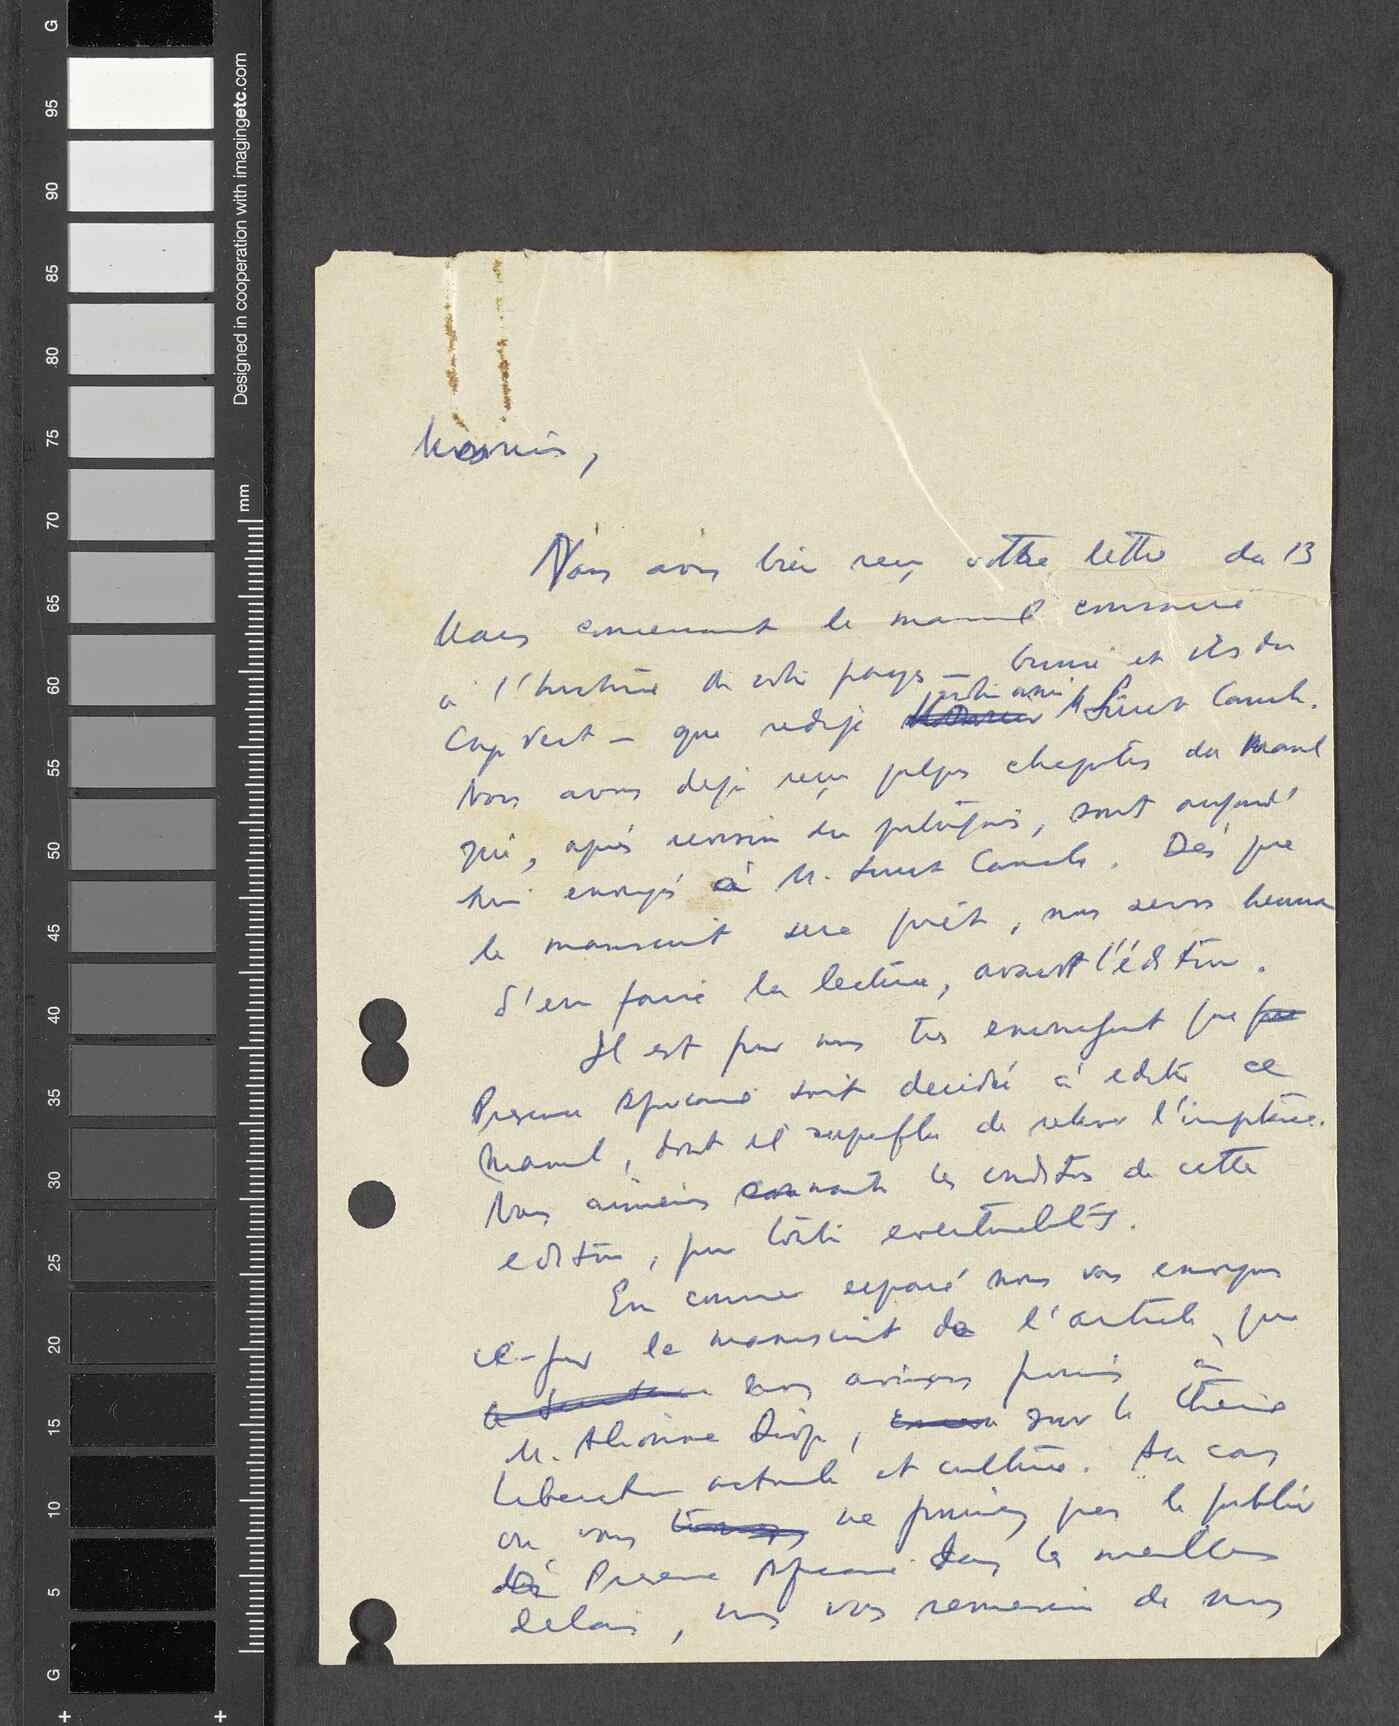 Monsieur,
Nous avons bien reçu votre lettre du 13
Mars concernant le manuel consacré
à l'histoire de votre pays — Guinée et îles du
Cap Vert — que rédige notre ami M. Suret Canale.
Nous avons déjà reçu quelques chapitres du Manuel
qui, après revision du portugais, sont aujourd'
hui envoyés à M. Suret Canale. Dès que
le manuscrit sera prêt, nous serons heureux
d'en faire la lecture, avant l'édition.
Il est pour nous très encourageant que
Presence Africaine soit décidée à editer ce
Manuel, dont il superflu de relever l'importance.
Nous aimerions connaitre les conditions de cette
edition, pour toute eventualité.
En courrier separé nous vous envoyons
le manuscrit de l'article, que
nous avions promis à
M. Alioune Diop, sur le thème
Liberation nationale et culture. Au cas
où vous ne pourriez pas le publier
Presence Africaine dans les meilleurs
delais, nous vous remercions de nous
G
95
90
85
80
75
70
65
60
55
50
45
40
35
30
25
20
15
10
5
G
mm
Designed in cooperation with imagingetc.com